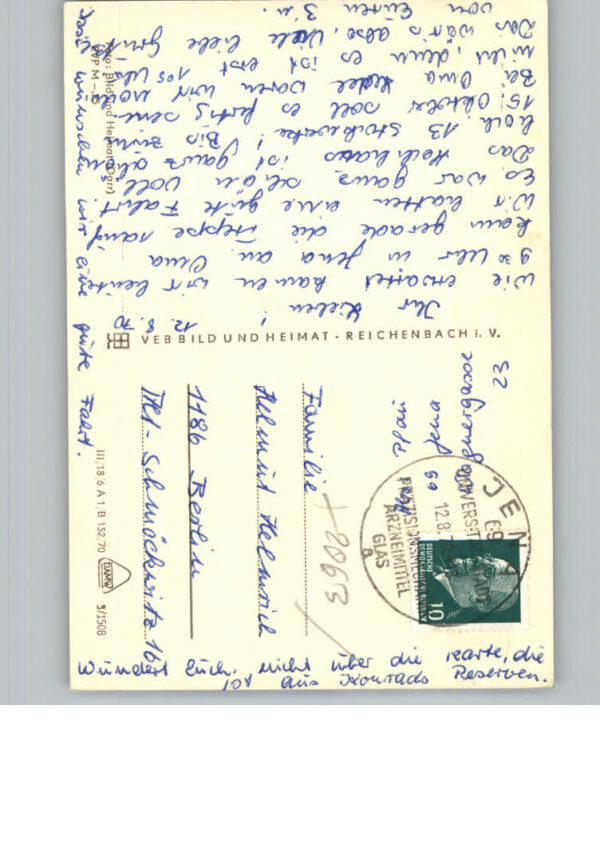 12.8.70
Ihr Lieben!
Wie erwartet kamen wir heute
9.30 Uhr in Jena an. Oma
kam gerade die Treppe rauf.
Wir hatten eine gute Fahrt.
Es war ganz schön voll.
Das Hochhaus ist ganz schön
hoch, 13 Stockwerke! Bis zum
15. Oktober soll es fertig sein.
Bei Oma waren wir noch
nicht, denn es ist erst 10 Uhr.
Das wär's also, viele liebe Grüße
von Euren 3 n.
Wir wünschen eine gute Fahrt.
Foto: Bild und Heimat (Darr)
VEB BILD UND HEIMAT - REICHENBACH i. V.
III/18/6 A 1/B 152/70
DAMW
5/1508
Familie
Helmut Helmrich
1186 Berlin
Schmöckwitz 16
Jena
69
Wagnergasse
23
JENA
69
UNIVERSITÄTSSTADT
12.8.70
PRÄZISIONSMECHANIK
ARZNEIMITTEL
GLAS
a
DEUTSCHE
DEMOKRATISCHE REPUBLIK
10
Wundert Euch nicht über die Karte, die
ist aus Konrads Reserven.